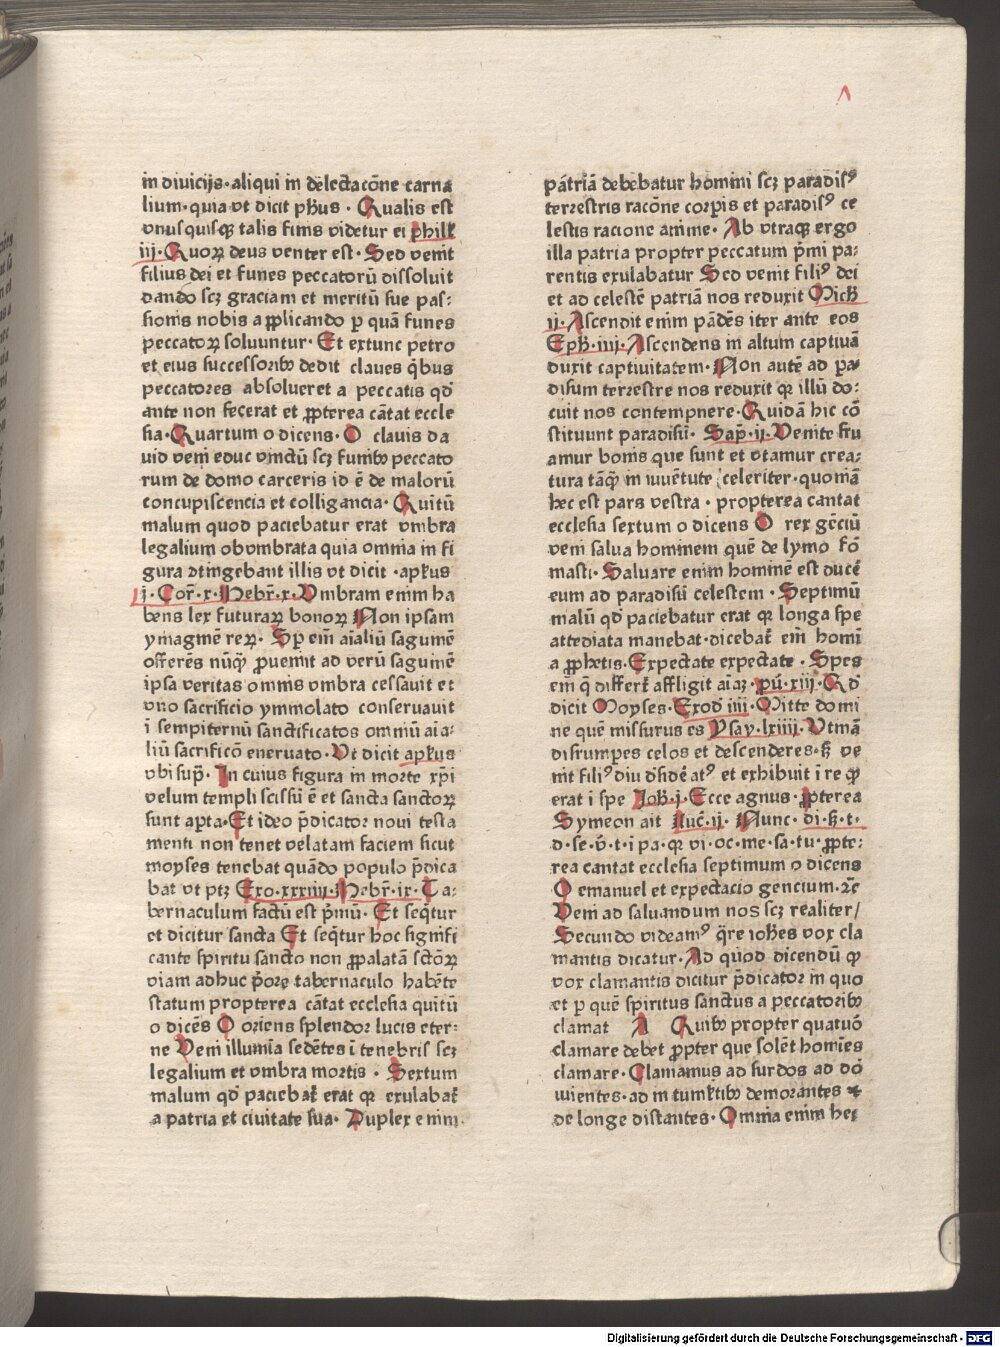 in diuicijs·aliqui in delectacōne carna
lium·quia vt dicit phus · Qualis est
vnusquisqꝫ talis finis videtur ei phill̄
iij·Quoꝝ deus venter est· Sed venit
filius dei et funes peccatorū dissoluit
dando scꝫ graciam et meritū sue pas⸗
sionis nobis a ꝓplicando ꝑ quā funes
peccatoꝝ soluuntur· Et extunc petro
et eius successoribꝰ dedit claues q̄bus
peccatores absolueret a peccatis qd̄
ante non fecerat et ꝓpterea cātat eccle
sia·Quartum o dicens· O clauis da
uid veni educ vinctū scꝫ funibꝰ peccato
rum de domo carceris id ē de malorū
concupiscencia et colligancia· Quītū
malum quod paciebatur erat vmbra
legalium obumbrata quia omnia in fi
gura ↄtingebant illis vt dicit ·apl̄us
j·Cor̄·x·Hebr̄·x·Vmbram enim ha
bens lex futuraꝝ bonoꝝ Non ipsam
ymaginē reꝝ· Sꝑ em̄ aīaliū sagumē
offerēs nūꝗ̄ ꝓuenit ad verū sagumē
ipsa veritas omnis vmbra cessauit et
vno sacrificio ymmolato conseruauit
ī sempiternū sanctificatos omniū aīa⸗
liū sacrificō eneruato·Vt dicit apl̄us
vbi sup̄· In cuius figura in morte xp̄i
velum templi scissū ē et sancta sanctoꝝ
sunt apta·Et ideo p̄dicator noui testa
menti non tenet velatam faciem sicut
moyses tenebat quādo populo p̄dica
bat vt ptꝫ Exo·xxxiiij·Hebr̄·ix·Ta⸗
bernaculum factū est p̄mū· Et seq̄tur
et dicitur sancta Et seq̄tur hoc signifi
cante spiritu sancto non ꝓpalatā sctōꝝ
viam adhuc p̄ore tabernaculo habēte
statum propterea cātat ecclesia quītū
o dicēs O oriens splendor lucis eter⸗
ne Veni illumīa sedētes ī tenebris scꝫ
legalium et vmbra mortis · Sextum
malum qd̄ paciebat᷑ erat ꝙ exulabat᷑
a patria et ciuitate sua· Duplex enim·
pātriā debebatur homini scꝫ paradisꝰ
terrestris racōne corpis et paradisꝰ ce
lestis racione anime· Ab vtraqꝫ ergo
illa patria propter peccatum p̄mi pa⸗
rentis exulabatur Sed venit filiꝰ dei
et ad celestē patriā nos reduxit Mich̄
ij·Ascendit enim pādēs iter ante eos
Eph̄·iiij·Ascendens in altum captiuā
duxit captiuitatem·Non autē ad pa⸗
disum terrestre nos reduxit ꝙ illū do⸗
cuit nos contempnere·Quidā hic cō
stituunt paradisū· Sap̄·ij·Venite fru
amur bonis que sunt et vtamur crea⸗
tura tāꝗ̄ in iuuētute celeriter·quoniā
hec est pars vestra · propterea cantat
ecclesia sextum o dicens O rex gēciū
veni salua hominem quē de lymo fō
masti· Saluare enim hominē est ducē
eum ad paradisū celestem · Septimū
malū qd̄ paciebatur erat ꝙ longa spe
attediata manebat·dicebat᷑ em̄ homī
a ꝓphetis·Expectate expectate · Spes
em̄ q̄ differt᷑ affligit aīaꝫ·pū·xiij·Qd̄
dicit Moyses·Exod̄ iiij·Mitte domi
ne quē missurus es Ysay·lxiiij·Vtinā
disrumpes celos et descenderes·ꝫ ve
nit filiꝰ diu d̄sidēatꝰ et exhibuit ī re ꝙ
erat ī spe Joh̄·j·Ecce agnus·ꝓpterea
Symeon ait Luc̄·ij· Nunc· di·ꝫ·t·
d·se·v̄·t·ī pa·ꝙ vi·oc·me·sa·tu·ꝓpte⸗
rea cantat ecclesia septimum o dicens
O emanuel et expectacio gencium·ꝛc̄
Veni ad saluandum nos scꝫ realiter/
Secundo videamꝰ q̄re ioh̄es vox cla
mantis dicatur·Ad quod dicendū ꝙ
vox clamantis dicitur p̄dicator in quo
et ꝑ quē spiritus sanctus a peccatoribꝰ
clamat A Quibꝰ propter quatuō
clamare debet ꝓpter que solēt homīes
clamare·Clamamus ad surdos ad do
mientes·ad in tumul̄tibꝰ demorantes ⁊
de longe distantes· Omnia enim hec
Digitalisierung gefördert durch die Deutsche Forschungsgemeinschaft - DFG